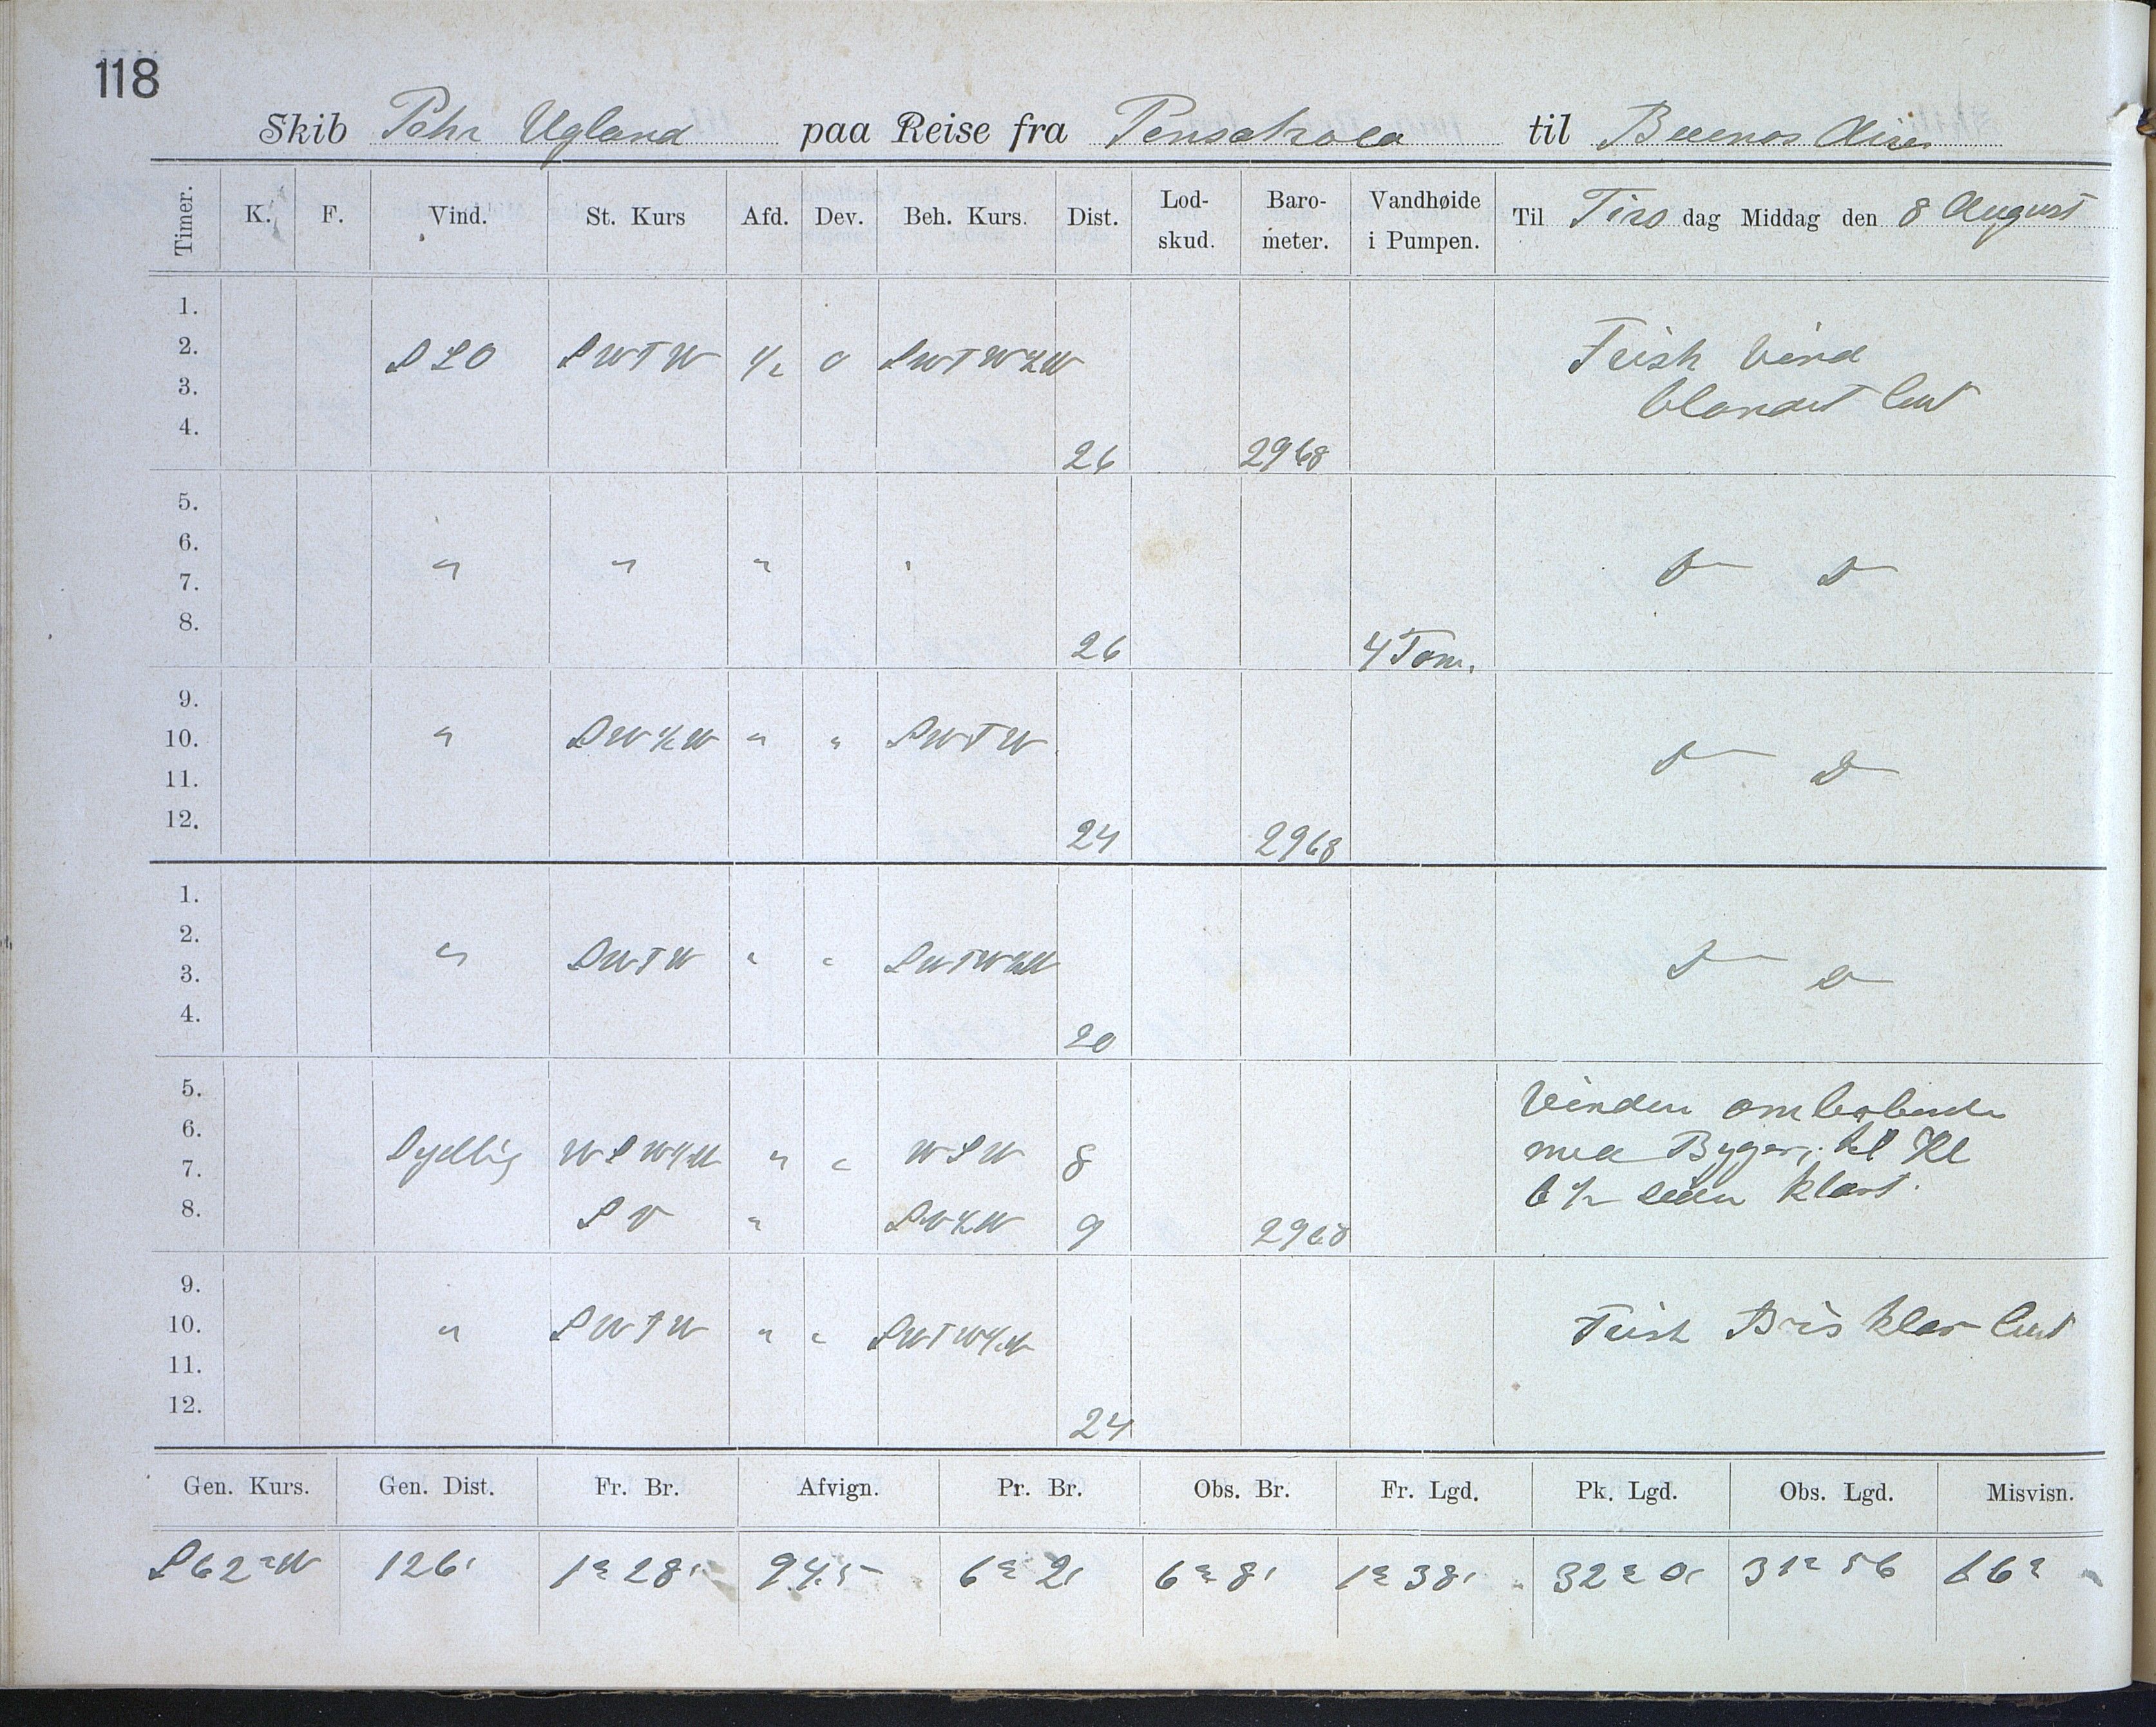 118
Skib Pehr Ugland paa Reise fra Pensakola til Buenos Aires
Timer. K. F. Vind. St. Kurs Afd. Dev. Beh. Kurs. Dist. Lod-skud. Baro-meter. Vandhøide i Pumpen. Til Tirs dag Middag den 8 August
1.
2. SSO SWTW 1/2 0 SWTW1/2W Frisk Vind
3. blandet luft
4. 26 2968
5.
6. " " " " D D
7.
8. 26 4 Tom.
9.
10. " SW1/2W " " SWTW D D
11.
12. 24 2968
1.
2. " SWTW " " SWTW1/2W D D
3.
4. 20
5. Vinden omløbende
6. Sydlig WSW1/2W " " WSW 8 med Byger, til Kl
7. 6 1/2 siden klart.
8. SV " SV1/2W 9 2968
9.
10. " SWTW " " SWTW1/2W Frisk Bris klar luft
11.
12. 24
Gen. Kurs. Gen. Dist. Fr. Br. Afvign. Pr. Br. Obs. Br. Fr. Lgd. Pk. Lgd. Obs. Lgd. Misvisn.
S62°W 126' 1° 28' 94.5 6° 2' 6° 8' 1° 38' 32° 0' 31° 56 16°